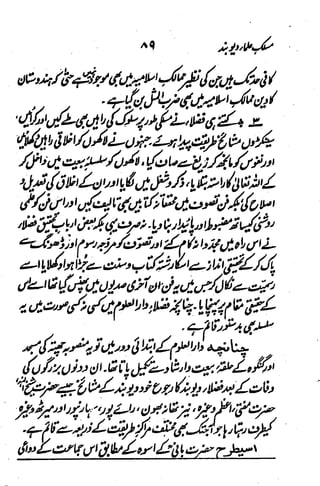 مسلک علماء دیوبند ۸۹
کافی حد تک ہیں جن کی نظیر ممالک اسلامیہ میں بھی موجود نہیں ہے حتیٰ کہ ہندوستان
کا دین ممالک اسلامیہ میں بھی ضرب المثل بن گیا ہے۔
۳ ۔ کتنے ہی فضلاء نے مسلکی طور پر سلوک کی راہیں بھی طے کیں اور کرائیں،
سینکڑوں مشائخ طریقت پیدا ہوئے، جنہوں نے لاکھوں کو اخلاقی راہیں دکھلائیں
اور نفوس کو مانجھ کر زیغ سے صاف کیا، لاکھوں کو سلسلہ بیعت میں داخل کر
کے اللہ تعالیٰ کا راستہ بتلایا، ذکر و شغل میں لگایا اور ان کے اخلاق کی تعدیل و
اصلاح کی بلکہ فن تصوف میں محققانہ کتابیں بھی تالیف کیں اور اس فن کو علمی
روشنی کے ساتھ مضبوط اور پائیدار بنا دیا۔ نہ صرف یہی بلکہ بعض ارباب تحقیق فضلاء
نے اس راہ میں مجددانہ کام کئے اور تصوف کو مروجہ رسوم اور ڈھونگ سے
پاک کر کے تحقیقی انداز سے اس کا رشتہ کتاب و سنت سے جڑا ہوا دکھلایا اسے
رسمیت سے نکال کر جس میں یہ فن ان آخری صدیوں میں پھنس گیا تھا اسے اس
کے حقیقی مقام پر پہنچایا۔ چنانچہ فضلاء دارالعلوم میں کسی نہ کسی صورت میں یہ
سلسلہ بھی بدستور قائم ہے۔
چنانچہ دارالعلوم کے ابتدائی دور میں تو یہ منصوبہ چھتہ کی مسجد
اور گنگوہ کے حلقہ بیعت و ارشاد سے تکمیل پاتا تھا۔ ان دونوں بزرگوں کی
وفات کے بعد فضلاء دیوبند کا رجوع خود دیوبند کے مشائخ جیسے حضرت شیخ الہندؒ
حضرت مفتی اعظمؒ وغیرہ، نیز تھانہ بھون، رائے پور، سہارنپور اور میرٹھ وغیرہ
کی طرف رہتا رہا جو آج تک بھی مختلف مراکز طریقت کے ذریعہ سے قائم ہے۔
اسی طرح حضرت بانیؒ کے اسوہ کے مطابق اس جماعت کے دوامی